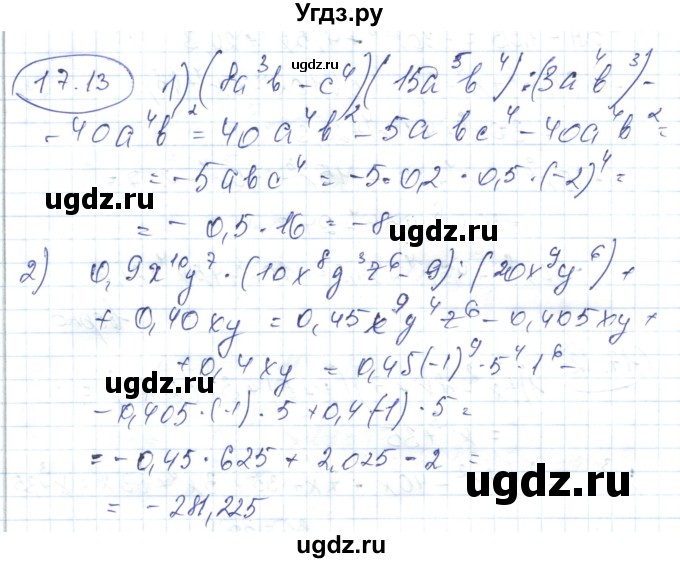 Угдз.ру
17.13 1) (8a³b - c⁴)(15a⁵b⁴) : (3a⁴b³) -
- 40a⁴b² = 40a⁴b² - 5abc⁴ - 40a⁴b² =
= -5abc⁴ = -5·0,2·0,5·(-2)⁴ =
ugdz.ru
ugdz.ru
= -0,5·16 = -8
2) 0,9x¹⁰y⁷·(10x⁸y³z⁶ - 9) : (20x⁹y⁶) +
+ 0,40xy = 0,45x⁹y⁴z⁶ - 0,405xy +
+ 0,4xy = 0,45(-1)⁹·5⁴·1⁶ -
ugdz.ru
ugdz.ru
- 0,405·(-1)·5 + 0,4(-1)·5 =
= -0,45·625 + 2,025 - 2 =
= -281,225
ugdz.ru
ugdz.ru
ugdz.ru